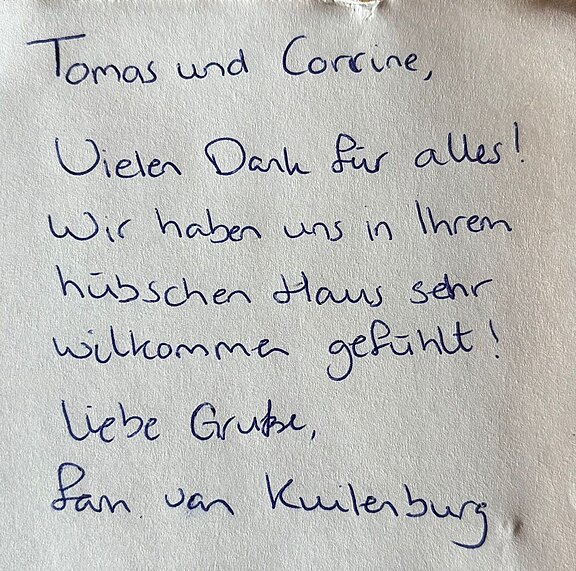 Tomas und Corrine,
Vielen Dank für alles!
Wir haben uns in Ihrem
hübschen Haus sehr
willkommen gefühlt!
Liebe Gruße,
fam. van Kuilenburg